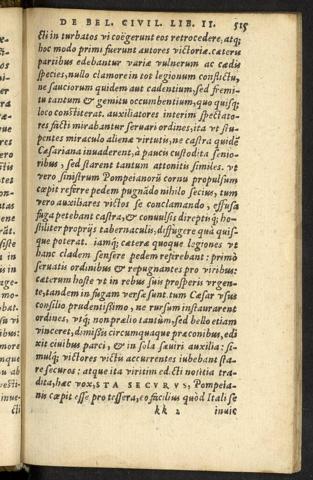 DE BEL. CIVIL. LIB. II. 515
cti in turbatos vi coëgerunt eos retrocedere, atq;
hoc modo primi fuerunt autores victoriæ. cæteru
partibus edebantur variæ vulnerum ac cædis
species, nullo clamore in tot legionum conflictu,
ne sauciorum quidem aut cadentium, sed fremi-
tu tantum & gemitu occumbentium, quo quisq;
loco constiterat. auxiliatores interim spectato-
res facti mirabantur seruari ordines, ita vt stu-
pentes miraculo aliena virtutis, ne castra quidē
Cæsariana inuaderent, à paucis custodita senio-
ribus, sed starent tantum attonitis similes. vt
vero sinistrum Pompeianorū cornu propulsum
cœpit referre pedem pugnādo nihilo secius, tum
vero auxiliares victos se conclamando, effusa
fuga petebant castra, & conuulsis direptisq; ho-
stiliter proprijs tabernaculis, diffugere quà quis-
que poterat. iamq; cæteræ quoque legiones vt
hanc cladem sensere pedem referebant: primò
seruatis ordinibus & repugnantes pro viribus:
cæterum hoste vt in rebus suis prosperis vrgen-
te, tandem in fugam versæ sunt. tum Cæsar vsus
consilio prudentissimo, ne rursum instaurarent
ordines, vtq; non prælio tantùm, sed bello etiam
vinceret, dimissis circumquaque præconibus, edi
xit ciuibus parci, & in sola sæuiri auxilia: si-
mulq; victores victis accurrentes iubebant sta-
re securos: atque ita viritim edicti notitia tra-
dita, hæc vox, STA SECVRVS, Pompeia-
nis cœpit esse pro tessera, eo facilius quòd Itali se
kk 2 inuic